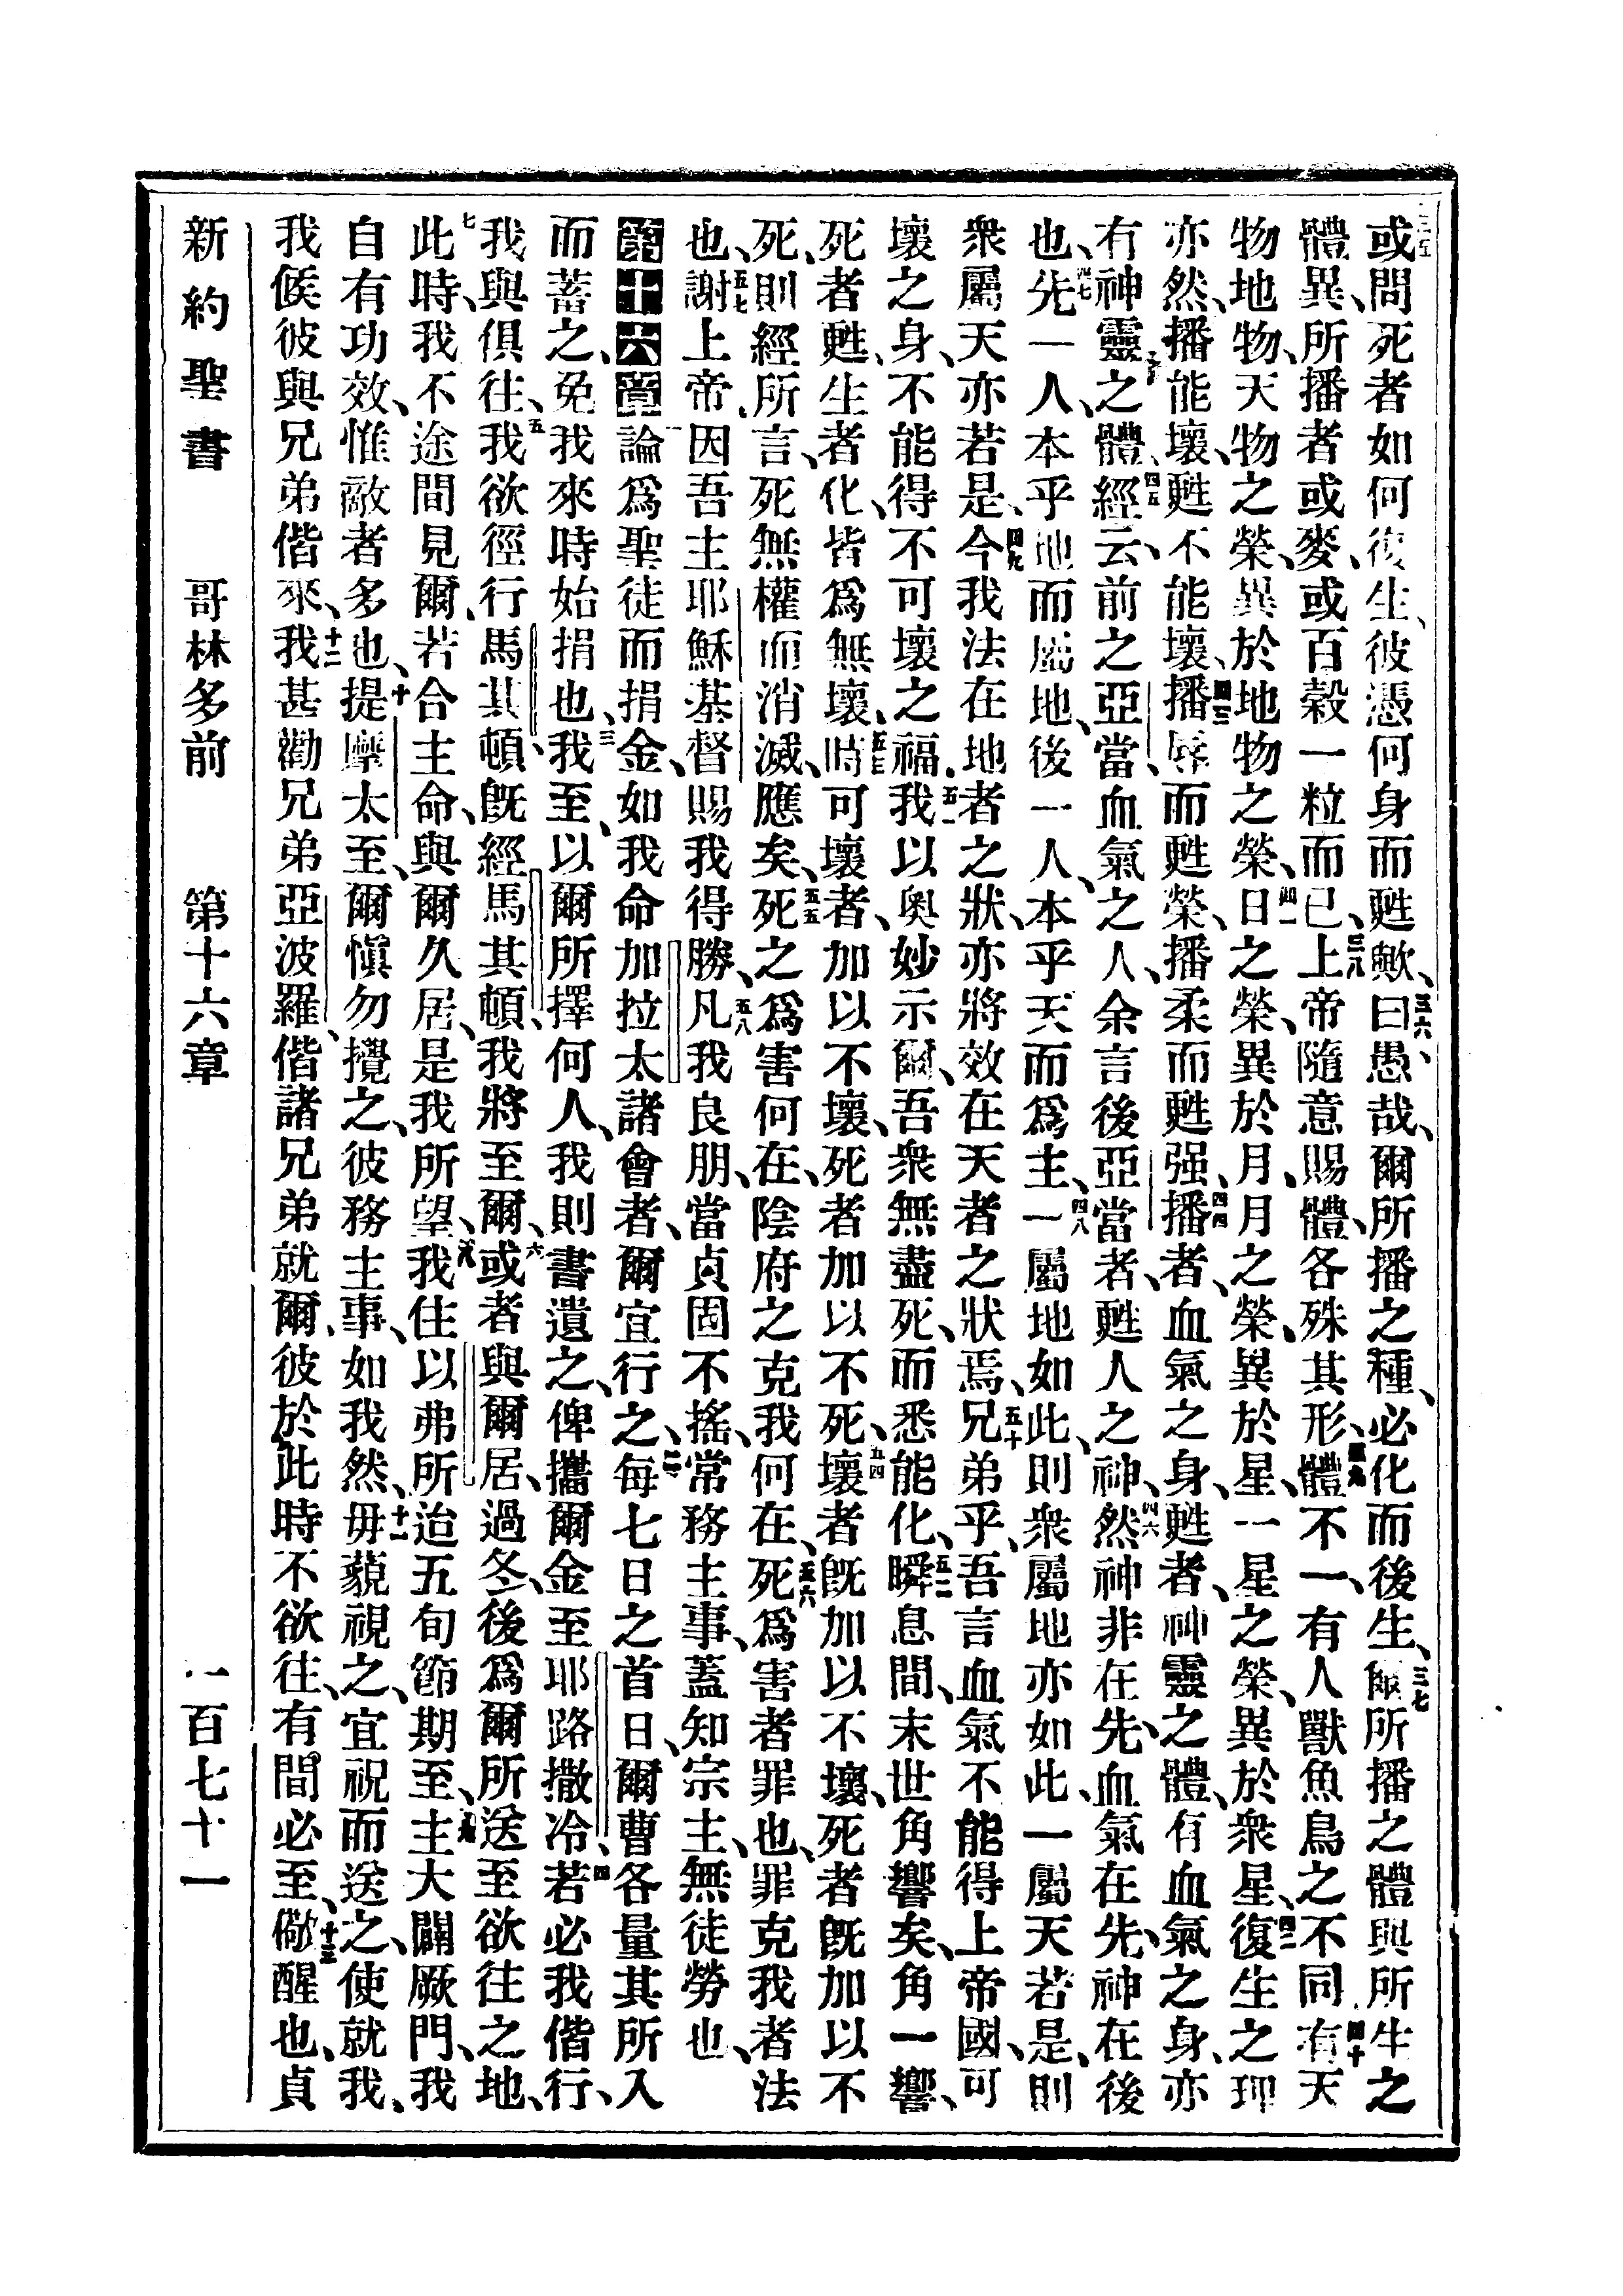 三五或問死者如何復生、彼憑何身而甦歟、三六曰、愚哉、爾所播之種、必化而後生、三七爾所播之體與所生之
體異、所播者或麥、或百穀一粒而已、三八上帝隨意賜體、各殊其形、三九體不一、有人獸魚鳥之不同、四十有天
物地物、天物之榮、異於地物之榮、四一日之榮、異於月、月之榮、異於星、一星之榮、異於衆星、四二復生之理
亦然、播能壞、甦不能壞、四三播辱而甦榮、播柔而甦强、四四播者、血氣之身、甦者、神靈之體、有血氣之身、亦
有神靈之體、四五經云、前之亞當、血氣之人、余言後亞當者、甦人之神、四六然神非在先、血氣在先、神在後
也、四七先一人、本乎地而屬地、後一人、本乎天而爲主、四八一屬地如此、則衆屬地亦如此、一屬天若是、則
衆屬天亦若是、四九今我法在地者之狀、亦將效在天者之狀焉、五十兄弟乎、吾言血氣不能得上帝國、可
壞之身、不能得不可壞之福、五一我以奧妙示爾、吾衆無盡死、而悉能化、五二瞬息間、末世角響矣、角一響、
死者甦、生者化、皆爲無壞、五三時可壞者、加以不壞、死者加以不死、五四壞者旣加以不壞、死者旣加以不
死、則經所言、死無權而消滅、應矣、五五死之爲害何在、陰府之克我何在、五六死爲害者罪也、罪克我者法
也、五七謝上帝、因吾主耶穌基督賜我得勝、五八凡我良朋、當貞固不搖、常務主事、蓋知宗主、無徒勞也、
第十六章論爲聖徒而捐金、如我命加拉太諸會者、爾宜行之、二每七日之首日、爾曹各量其所入
而蓄之、免我來時始捐也、三我至、以爾所擇何人、我則書遺之、俾攜爾金至耶路撒冷、四若必我偕行、
我與俱往、五我欲徑行馬其頓、旣經馬其頓、我將至爾、六或者與爾居、過冬、後爲爾所送至欲往之地、
七此時、我不途間見爾、若合主命、與爾久居、是我所望、八我住以弗所迨五旬節期至、九主大闢厥門、我
自有功效、惟敵者多也、十提摩太至、爾愼勿攪之、彼務主事、如我然、十一毋藐視之、宜祝而送之、使就我、
我候彼與兄弟偕來、十二我甚勸兄弟亞波羅、偕諸兄弟就爾、彼於此時不欲往、有間必至、十三儆醒也、貞
新約聖書　哥林多前　第十六章　一百七十一